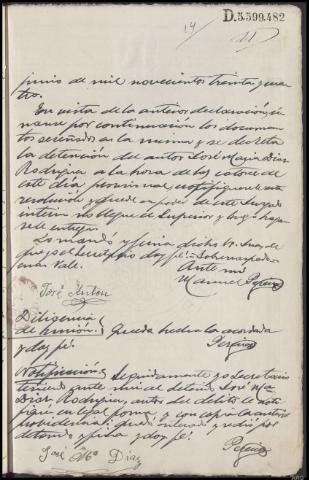 D.5.599.482
14
11
junio de mil novecientos treinta y cua-
tro.
En vista de la anterior declaración, ú-
nanse por continuación los documen-
tos reseñados en la misma y se decreta
la detención del autor José María Diaz
Rodriguez a la hora de las catorce de
este dia provisional notifiquesele esta
resolución y quede en poder de este Juzgado
interin no llegue el Superior y luego haga-
sele entrega.
Lo mandó y firma dicho Sr. Juez de
que yo el Secretario doy fé.
Ante mi
Manuel Pereira
José Antón
Diligencia
de unión. Queda hecha la acordada
y doy fé.
Pereira
Notificación. Seguidamente yo Secretario
teniendo ante mi al detenido José Mª
Diaz Rodriguez, autor del delito le noti-
fiqué en legal forma y con copia la anterior
providencia: quedó enterado y
detenido y firma y doy fé.
Pereira
José Mª Díaz